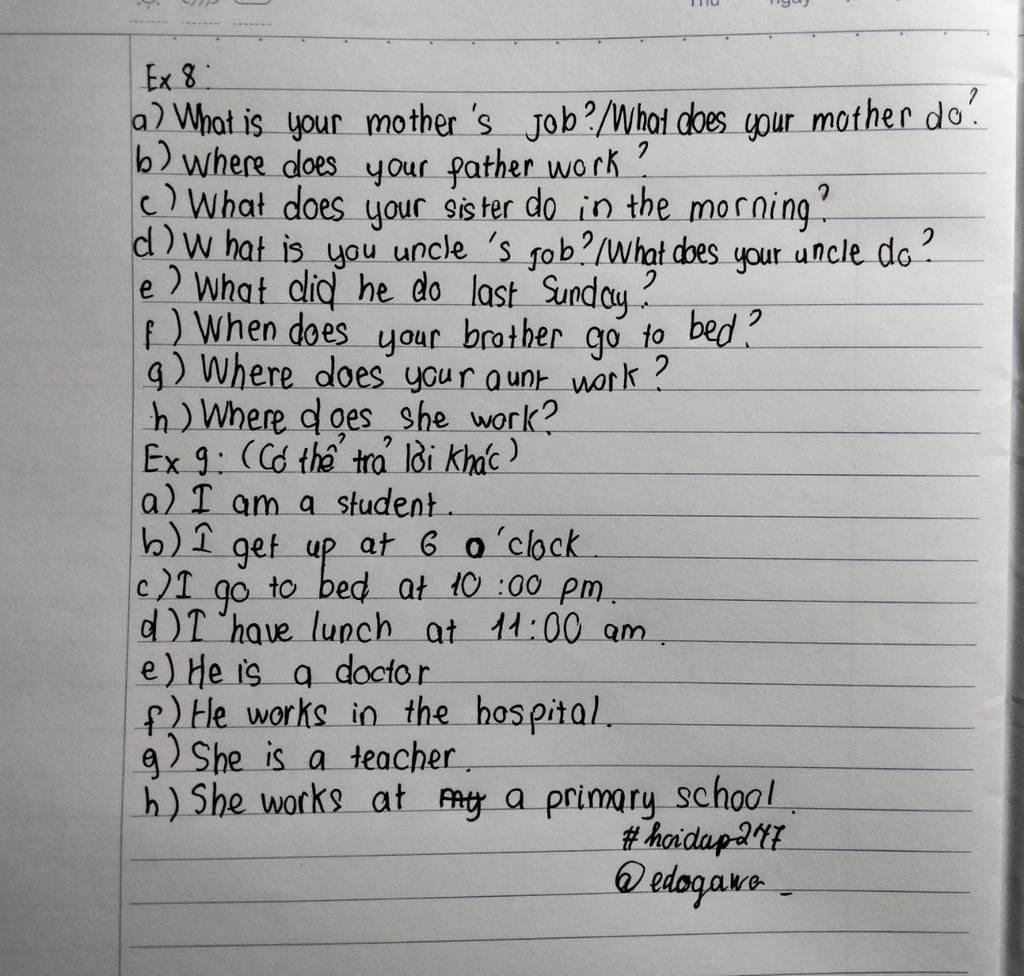 Thứ ngày
Ex 8:
a) What is your mother's job?/What does your mother do?
b) Where does your father work?
c) What does your sister do in the morning?
d) What is you uncle's job?/What does your uncle do?
e) What did he do last Sunday?
f) When does your brother go to bed?
g) Where does your aunt work?
h) Where does she work?
Ex 9: (Có thể trả lời khác)
a) I am a student.
b) I get up at 6 o'clock.
c) I go to bed at 10:00 pm.
d) I have lunch at 11:00 am.
e) He is a doctor
f) He works in the hospital.
g) She is a teacher.
h) She works at my a primary school.
#hoidap247
@edogawa_